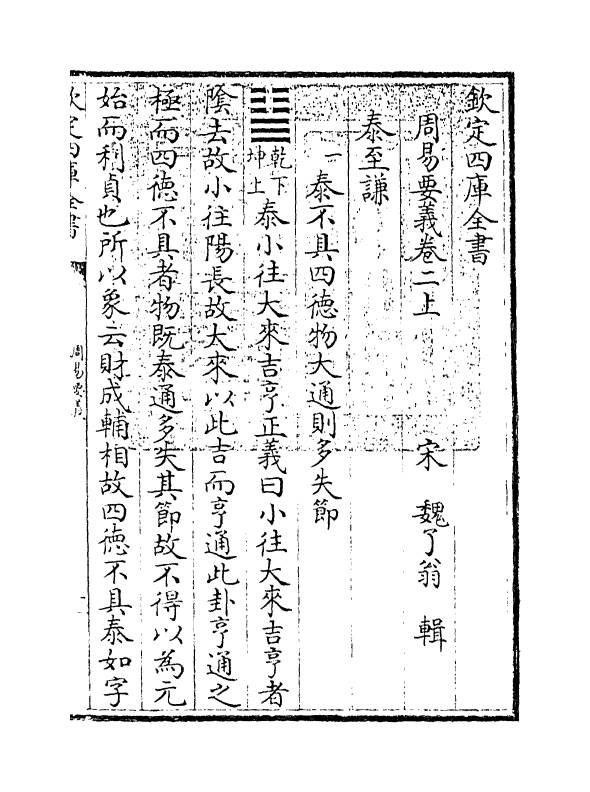 欽定四庫全書
周易要義卷二上　宋　魏了翁　輯
泰至謙
一泰不具四德物大通則多失節
䷊乾下坤上泰小往大來吉亨正義曰小往大來吉亨者
陰去故小往陽長故大來以此吉而亨通此卦亨通之
極而四德不具者物既泰通多失其節故不得以為元
始而利貞也所以象云財成輔相故四德不具泰如字
欽定四庫全書
周易要義